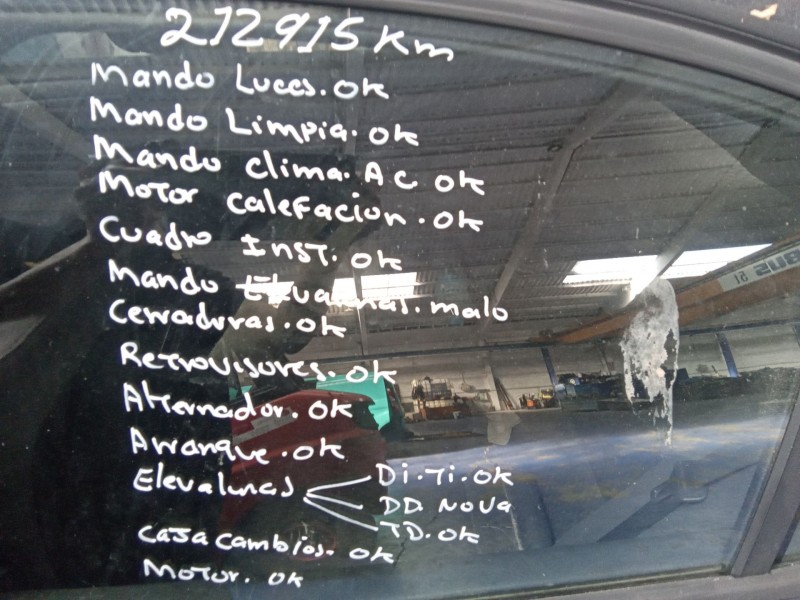 212915 Km
Mando Luces. Ok
Mando Limpia. Ok
Mando clima. A C Ok
Motor calefacion. Ok
Cuadro Inst. Ok
Mando Elevalunas. malo
Cerraduras. Ok
Retrovisores. Ok
Alternador. Ok
Arranque. Ok
Elevalunas
Di. Ti. Ok
DD. Nova
TD. Ok
Caja cambios. Ok
Motor. Ok